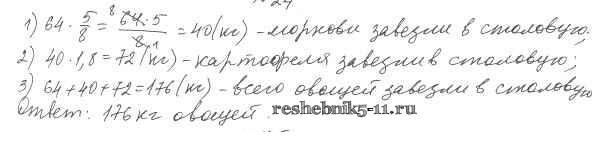 1) 64 · 5/8 = 64 · 5/8 = 40 (кг) – моркови завезли в столовую;
2) 40 · 1,8 = 72 (кг) – картофеля завезли в столовую;
3) 64 + 40 + 72 = 176 (кг) – всего овощей завезли в столовую
Ответ: 176 кг овощей.
reshebnik5-11.ru